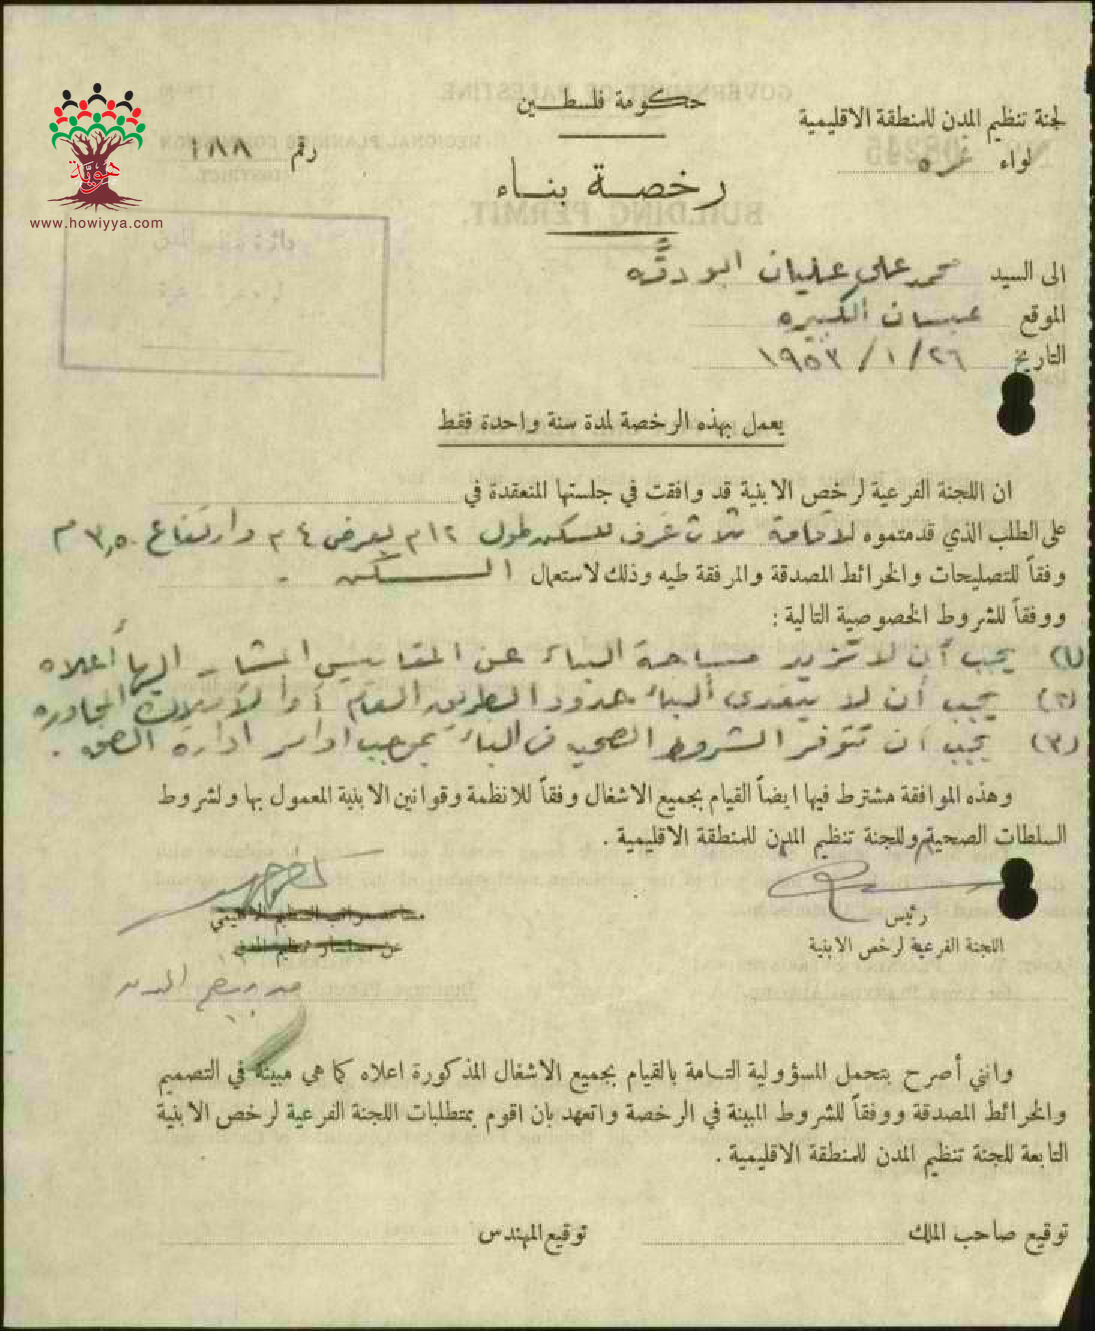 حكومة فلسطين
لجنة تنظيم المدن للمنطقة الاقليمية
لواء غزه
رقم ١٨٨
هوية
www.howiyya.com
رخصة بناء
الى السيد محمد علي عليان ابو دقه
الموقع عبسان الكبيره
التاريخ ٢٦/١/١٩٥٣
يعمل بهذه الرخصة لمدة سنة واحدة فقط
ان اللجنة الفرعية لرخص الابنية قد وافقت في جلستها المنعقدة في
على الطلب الذي قدمتموه لاقامة ثلاث غرف للسكن طول ١٢م بعرض ٤م وارتفاع ٣,٥٠م
وفقاً للتصليحات والخرائط المصدقة والمرفقة طيه وذلك لاستعمال السكن .
ووفقاً للشروط الخصوصية التالية :
(١) يجب أن لا تزيد مساحة البناء عن المقاييس المشار اليها أعلاه
(٢) يجب أن لا يتعدى البناء حدود الطريق العام أو الأملاك المجاوره
(٣) يجب أن تتوفر الشروط الصحيه في البناء بموجب اوامر ادارة الصحه .
وهذه الموافقة مشترط فيها ايضاً القيام بجميع الاشغال وفقاً للانظمة وقوانين الابنية المعمول بها ولشروط
السلطات الصحية وللجنة تنظيم المدن للمنطقة الاقليمية .
رئيس
اللجنة الفرعية لرخص الابنية
مساعد مراقب التنظيم الاقليمي
عن مستشار تنظيم المدن
المدن
وانني أصرح بتحمل المسؤولية التامة بالقيام بجميع الاشغال المذكورة اعلاه كما هي مبينة في التصميم
والخرائط المصدقة ووفقاً للشروط المبينة في الرخصة واتعهد بان اقوم بمتطلبات اللجنة الفرعية لرخص الابنية
التابعة للجنة تنظيم المدن للمنطقة الاقليمية .
توقيع صاحب الملك
توقيع المهندس